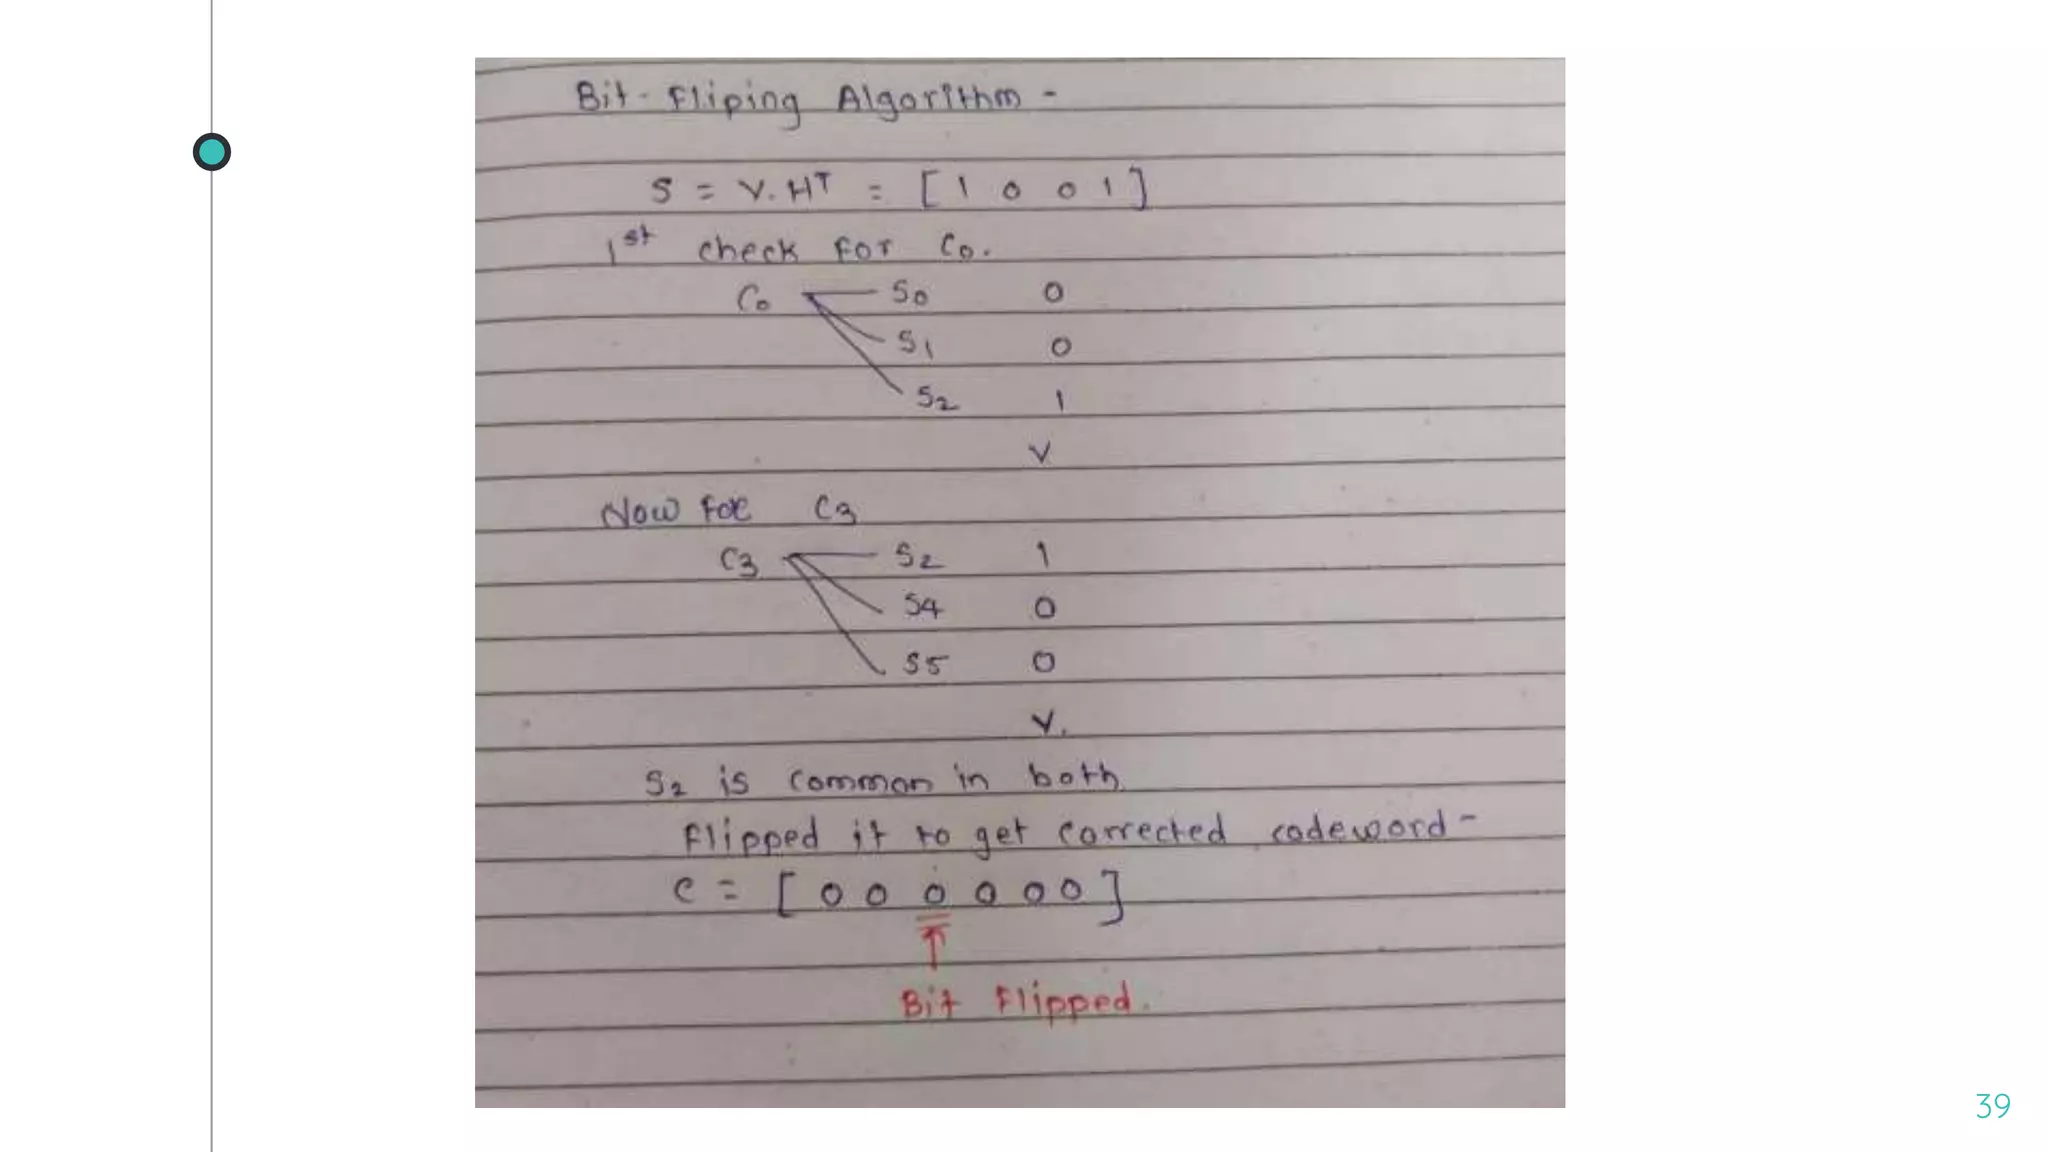 Bit-Fliping Algorithm -
S = V.HT = [1 0 0 1]
1st check for C0.
C0 S0 0
S1 0
S2 1
V
Now for C3
C3 S2 1
S4 0
S5 0
V.
S2 is common in both
Flipped it to get corrected codeword-
C = [0 0 0 0 0 0]
Bit Flipped.
39